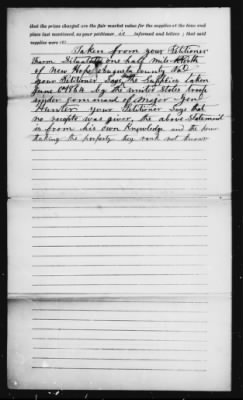 that the prices charged are the fair market value for the supplies at the time and
place last mentioned, as your petitioner is informed and believes; that said
supplies were (6)
Taken from your Petitioner
Farm Situated one half mile North
of New Hope Augusta county Va
your Petitioner Says the Supplies taken
June 6 1864 by the united States troops
under Command of Major Gen
Hunter your Petitioner Says that
no receipts was given, the above Statement
is from his own Knowledge and the
taking the property they